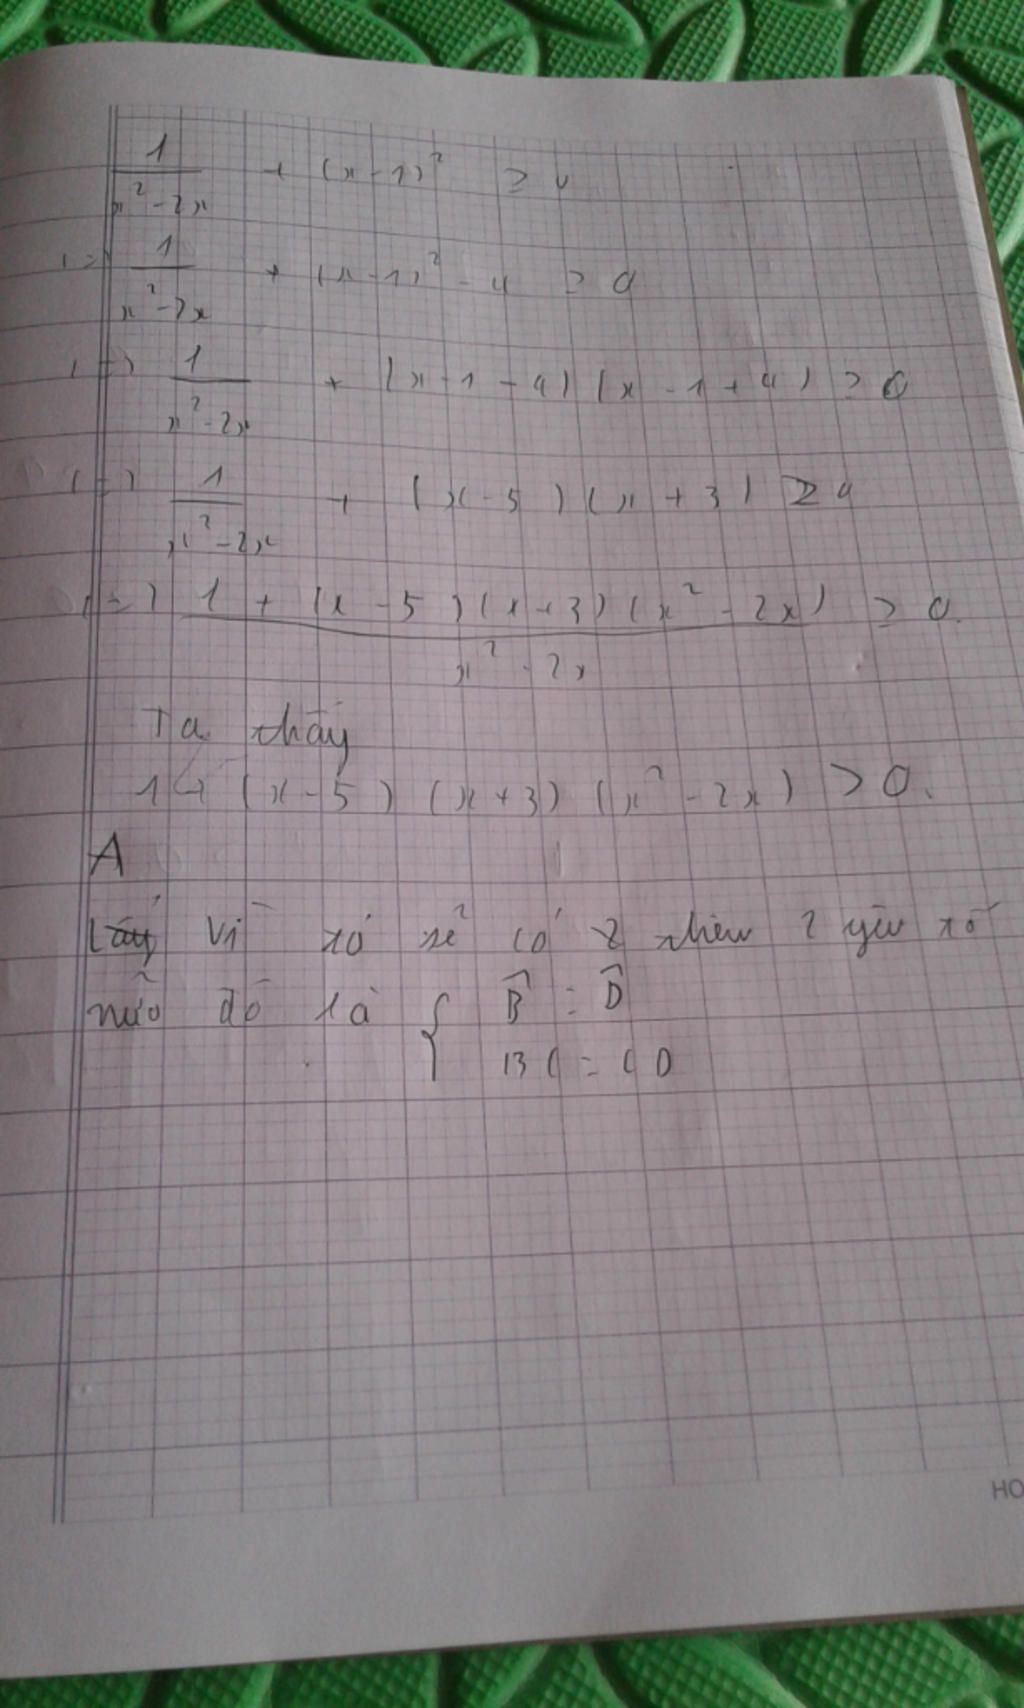 1/(x² - 2x) + (x - 1)² ≥ 4
(=) 1/(x² - 2x) + (x - 1)² - 4 ≥ 0
(=) 1/(x² - 2x) + (x - 1 - 4)(x - 1 + 4) ≥ 0
(=) 1/(x² - 2x) + (x - 5)(x + 3) ≥ 0
(=) (1 + (x - 5)(x + 3)(x² - 2x))/(x² - 2x) ≥ 0
Ta thấy
1 + (x - 5)(x + 3)(x² - 2x) > 0.
A
Vì nó sẽ có 2 thêm 2 yếu tố
nữa đó là { B̂ = D̂
BC = CD
HO